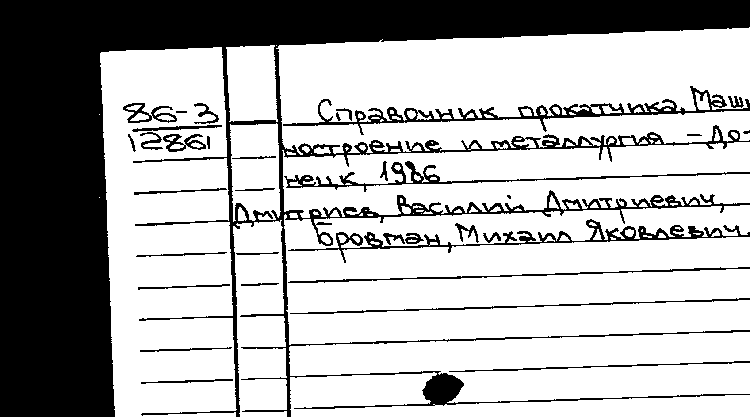 86-3
12861
Справочник прокатчика. Маши
ностроение и металлургия. - До-
нецк, 1986
Дмитриев, Василий Дмитриевич,
Бровман, Михаил Яковлевич.